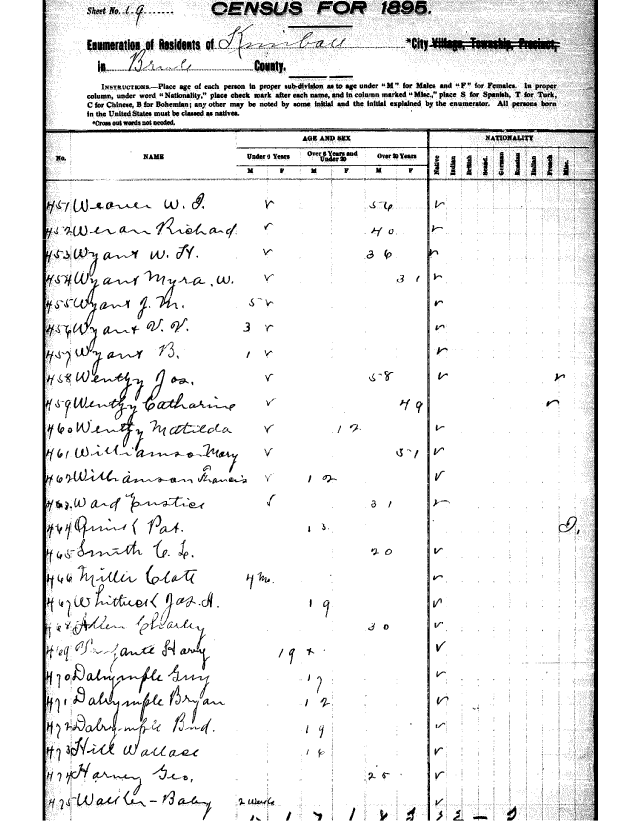 Sheet No. 19
CENSUS FOR 1895.
Enumeration of Residents of Kimball *City Village, Township, Precinct,
in Brule County.
INSTRUCTIONS.—Place age of each person in proper sub-division as to age under "M" for Males and "F" for Females. In proper
column, under word "Nationality," place check mark after each name, and in column marked "Misc.," place S for Spanish, T for Turk,
C for Chinese, B for Bohemian; any other may be noted by some initial and the initial explained by the enumerator. All persons born
in the United States must be classed as natives.
*Cross out words not needed.
AGE AND SEX NATIONALITY
No. NAME Under 6 Years Over 6 Years and Under 20 Over 20 Years Native Italian British German Russian Italian French Misc.
M F M F M F
451 Weaver W. J. 56
452 Richard 40
453 Wyant W. H. 36
454 Wyant Myra, W. 31
455 Wyant J. M. 5
456 Wyant V. V. 3
457 Wyant B. 1
458 Wentzy Jos. 58
459 Wentzy Catharine 49
460 Wentzy Matilda 12
461 Williamson Mary 51
462 Williamson Francis 12
463 Ward Eustice 31
464 Pat.
465 Smith C. L. 20
466 Miller Clate 4 Mo.
467 Jas. H. 19
468 Allen Charley 30
469 Harry 19
470 Dalrymple Guy 17
471 Dalrymple Bryan 12
472 Dalrymple Bud. 19
473 Hill Wallace 16
474 Harney Geo. 25
475 Baby 2 Weeks